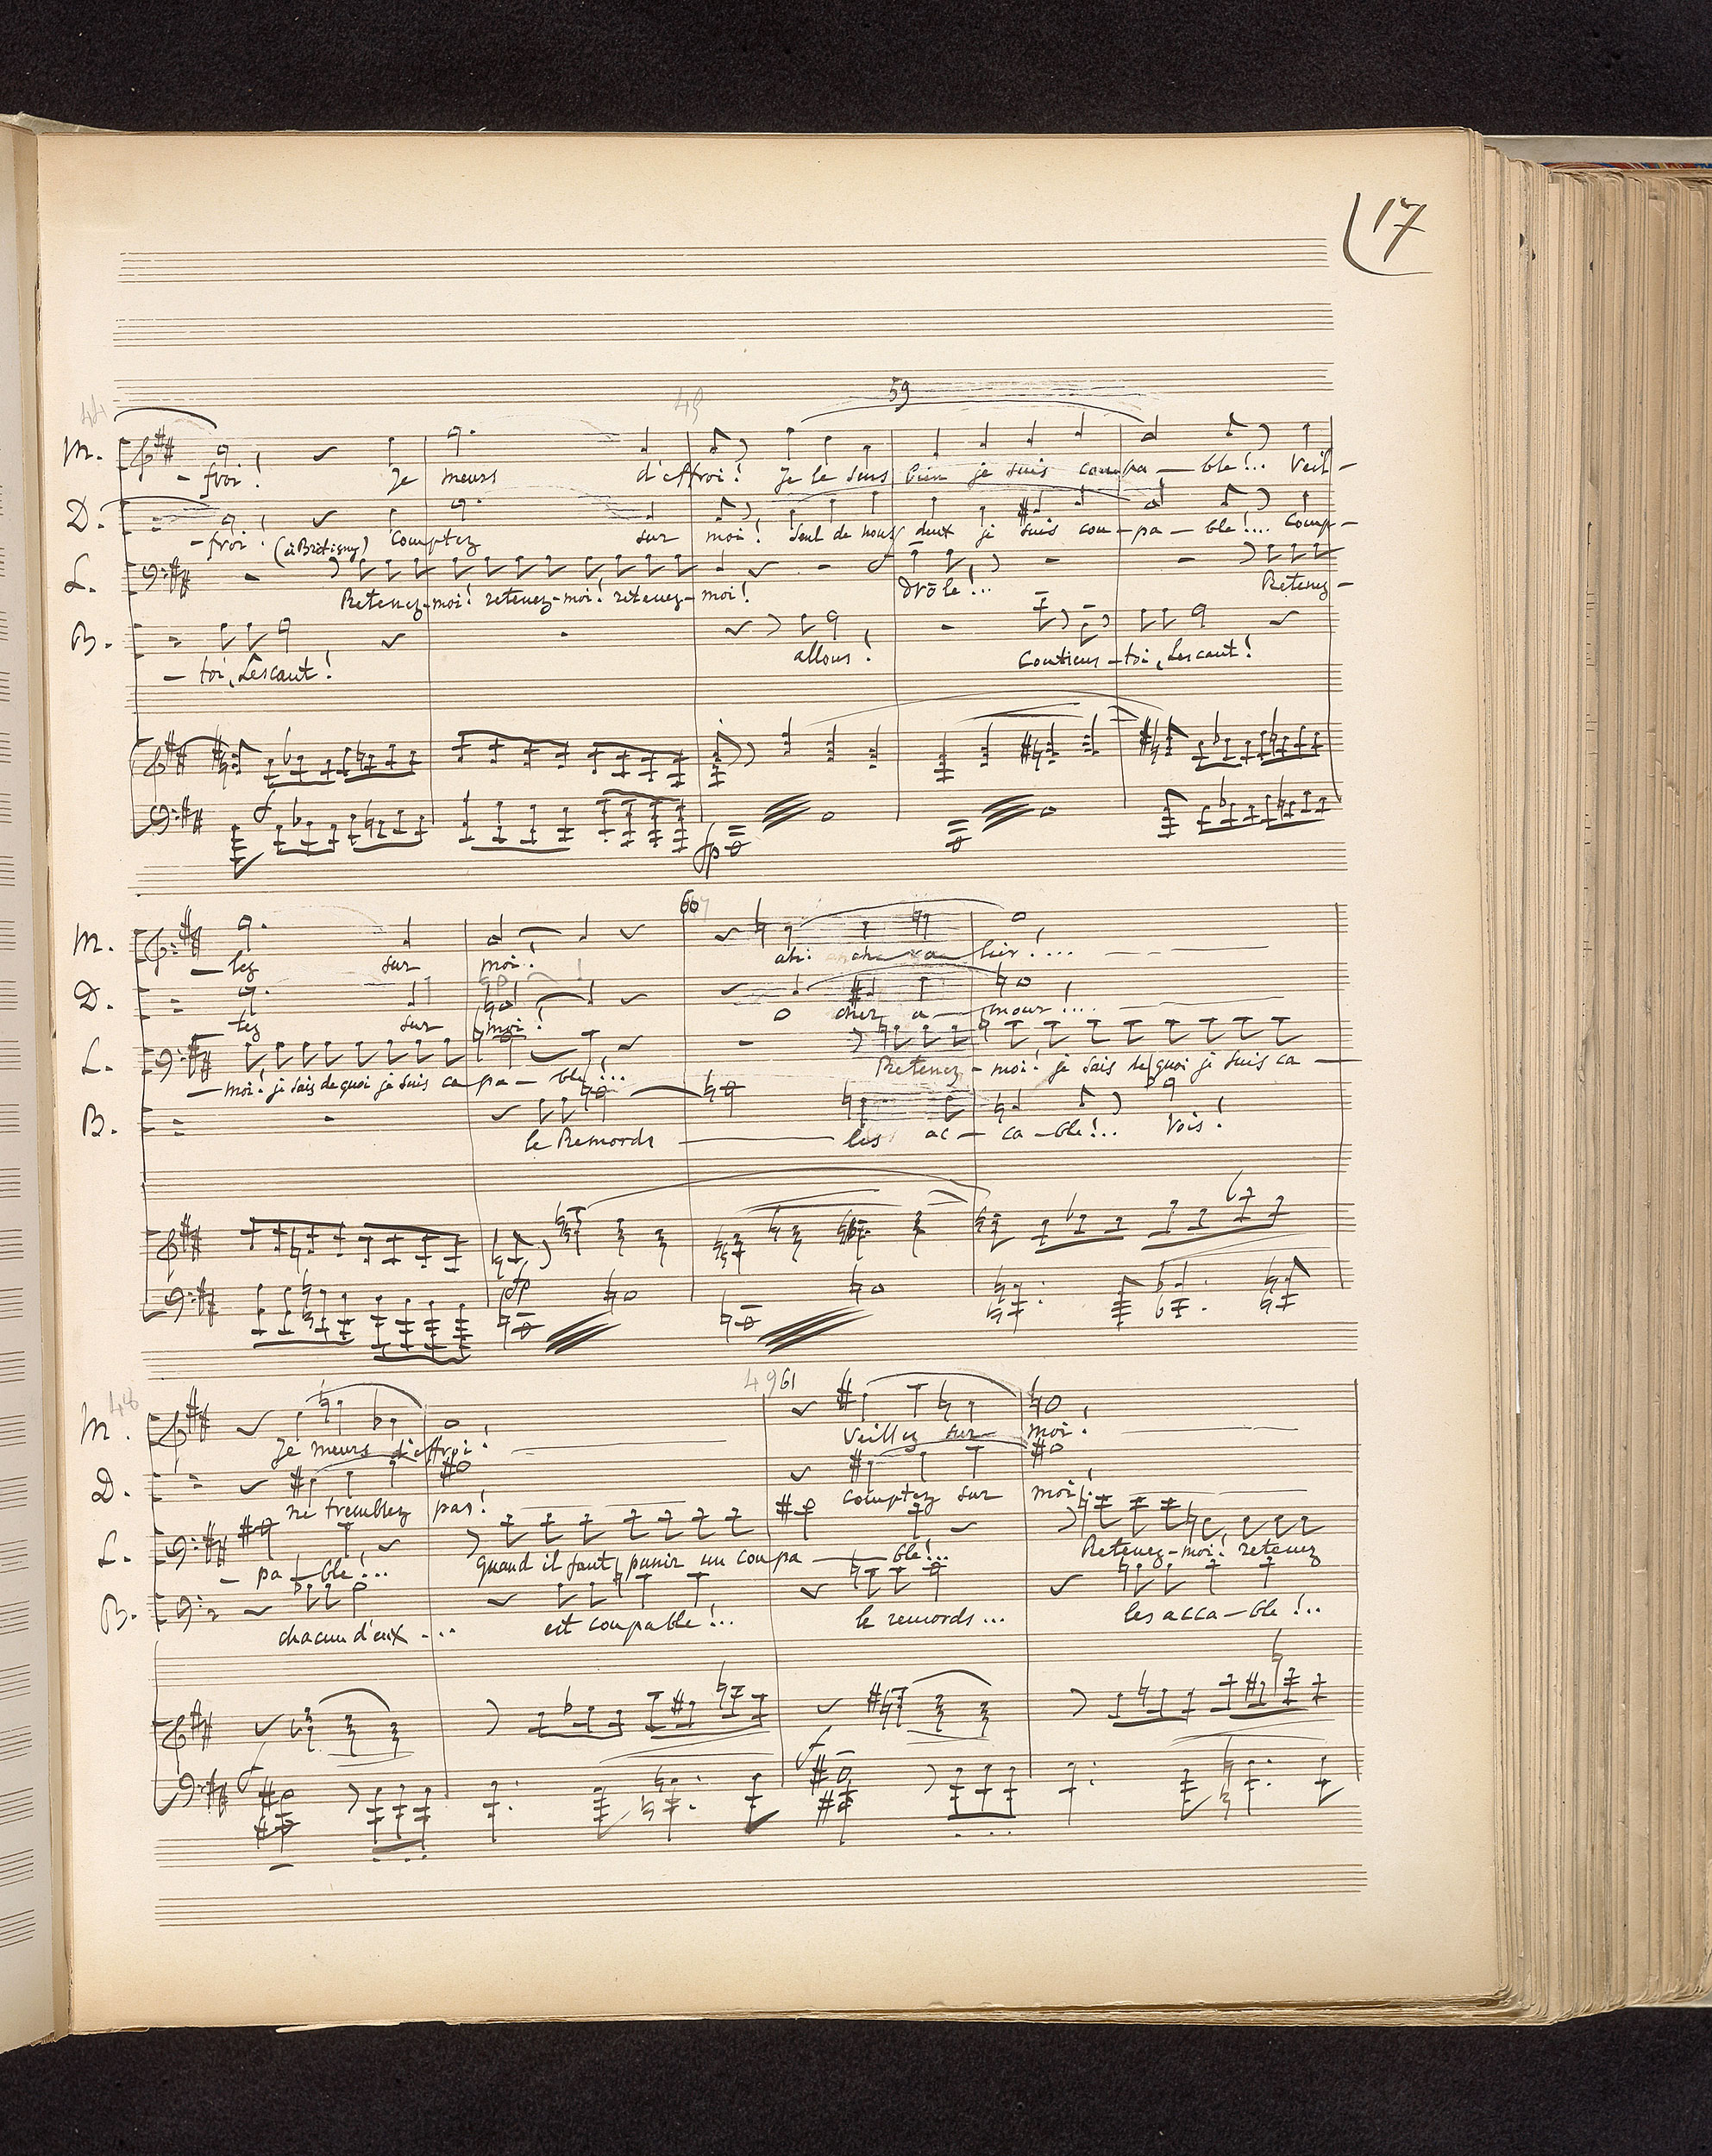 17
44 45 59
M. - froi! Je meurs d'effroi! Je le sens bien je suis coupa - ble!.. Veil -
D. - froi! (à Brétigny) Comptez sur moi! Seul de nous deux je suis cou - pa - ble!... Comp -
L. Retenez-moi! retenez-moi! retenez-moi! Drôle!... Retenez -
B. - toi, Lescaut! allons! Contiens - toi, Lescaut!
fp
60
M. - lez sur moi! ah! lier!....
D. - tez sur moi! O cher a - mour!...
L. - moi! je sais de quoi je suis ca - pa - ble!... Retenez - moi! je sais de quoi je suis ca -
B. le Remords les ac - ca - ble!.. Vois!
fp
48 49 61
M. Je meurs d'effroi! Veillez sur moi!
D. ne tremblez pas! comptez sur moi!
L. - pa - ble!... quand il faut punir un coupa - ble!.. Retenez-moi! retenez
B. chacun d'eux ... est coupable!.. le remords... les acca - ble!..
f f